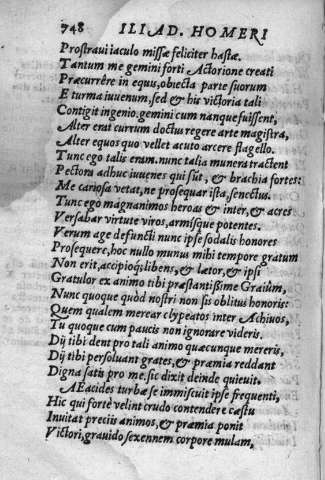 748 ILIAD. HOMERI
Prostraui iaculo missæ feliciter hastæ.
Tantum me gemini forti Actorione creati
Præcurrêre in equis, obiecta parte suorum
E turma iuuenum, sed & his victoria tali
Contigit ingenio. gemini cum nanque fuissent,
Alter erat currum doctus regere arte magistra,
Alter equos quo vellet acuto arcere flagello.
Tunc ego talis eram. nunc talia munera tractent
Pectora adhuc iuuenes qui sût, & brachia fortes:
Me cariosa vetat, ne prosequar ista, senectus.
Tunc ego magnanimos heroas & inter, & acres
Versabar virtute viros, armisque potentes.
Verum age defuncti nunc ipse sodalis honores
Prosequere, hoc nullo munus mihi tempore gratum
Non erit, accipioq; libens, & lætor, & ipsi
Gratulor ex animo tibi præstantißime Graiûm,
Nunc quoque quòd nostri non sis oblitus honoris:
Quem qualem merear clypeatos inter Achiuos,
Tu quoque cum paucis non ignorare videris.
Dij tibi dent pro tali animo quæcunque mereris,
Dij tibi persoluant grates, & præmia reddant
Digna satis pro me. sic dixit deinde quieuit.
AEacides turbæ se immiscuit ipse frequenti,
Hic qui fortè velint crudo contendere cæstu
Inuitat preciis animos, & præmia ponit
Victori, grauido sexennem corpore mulam,